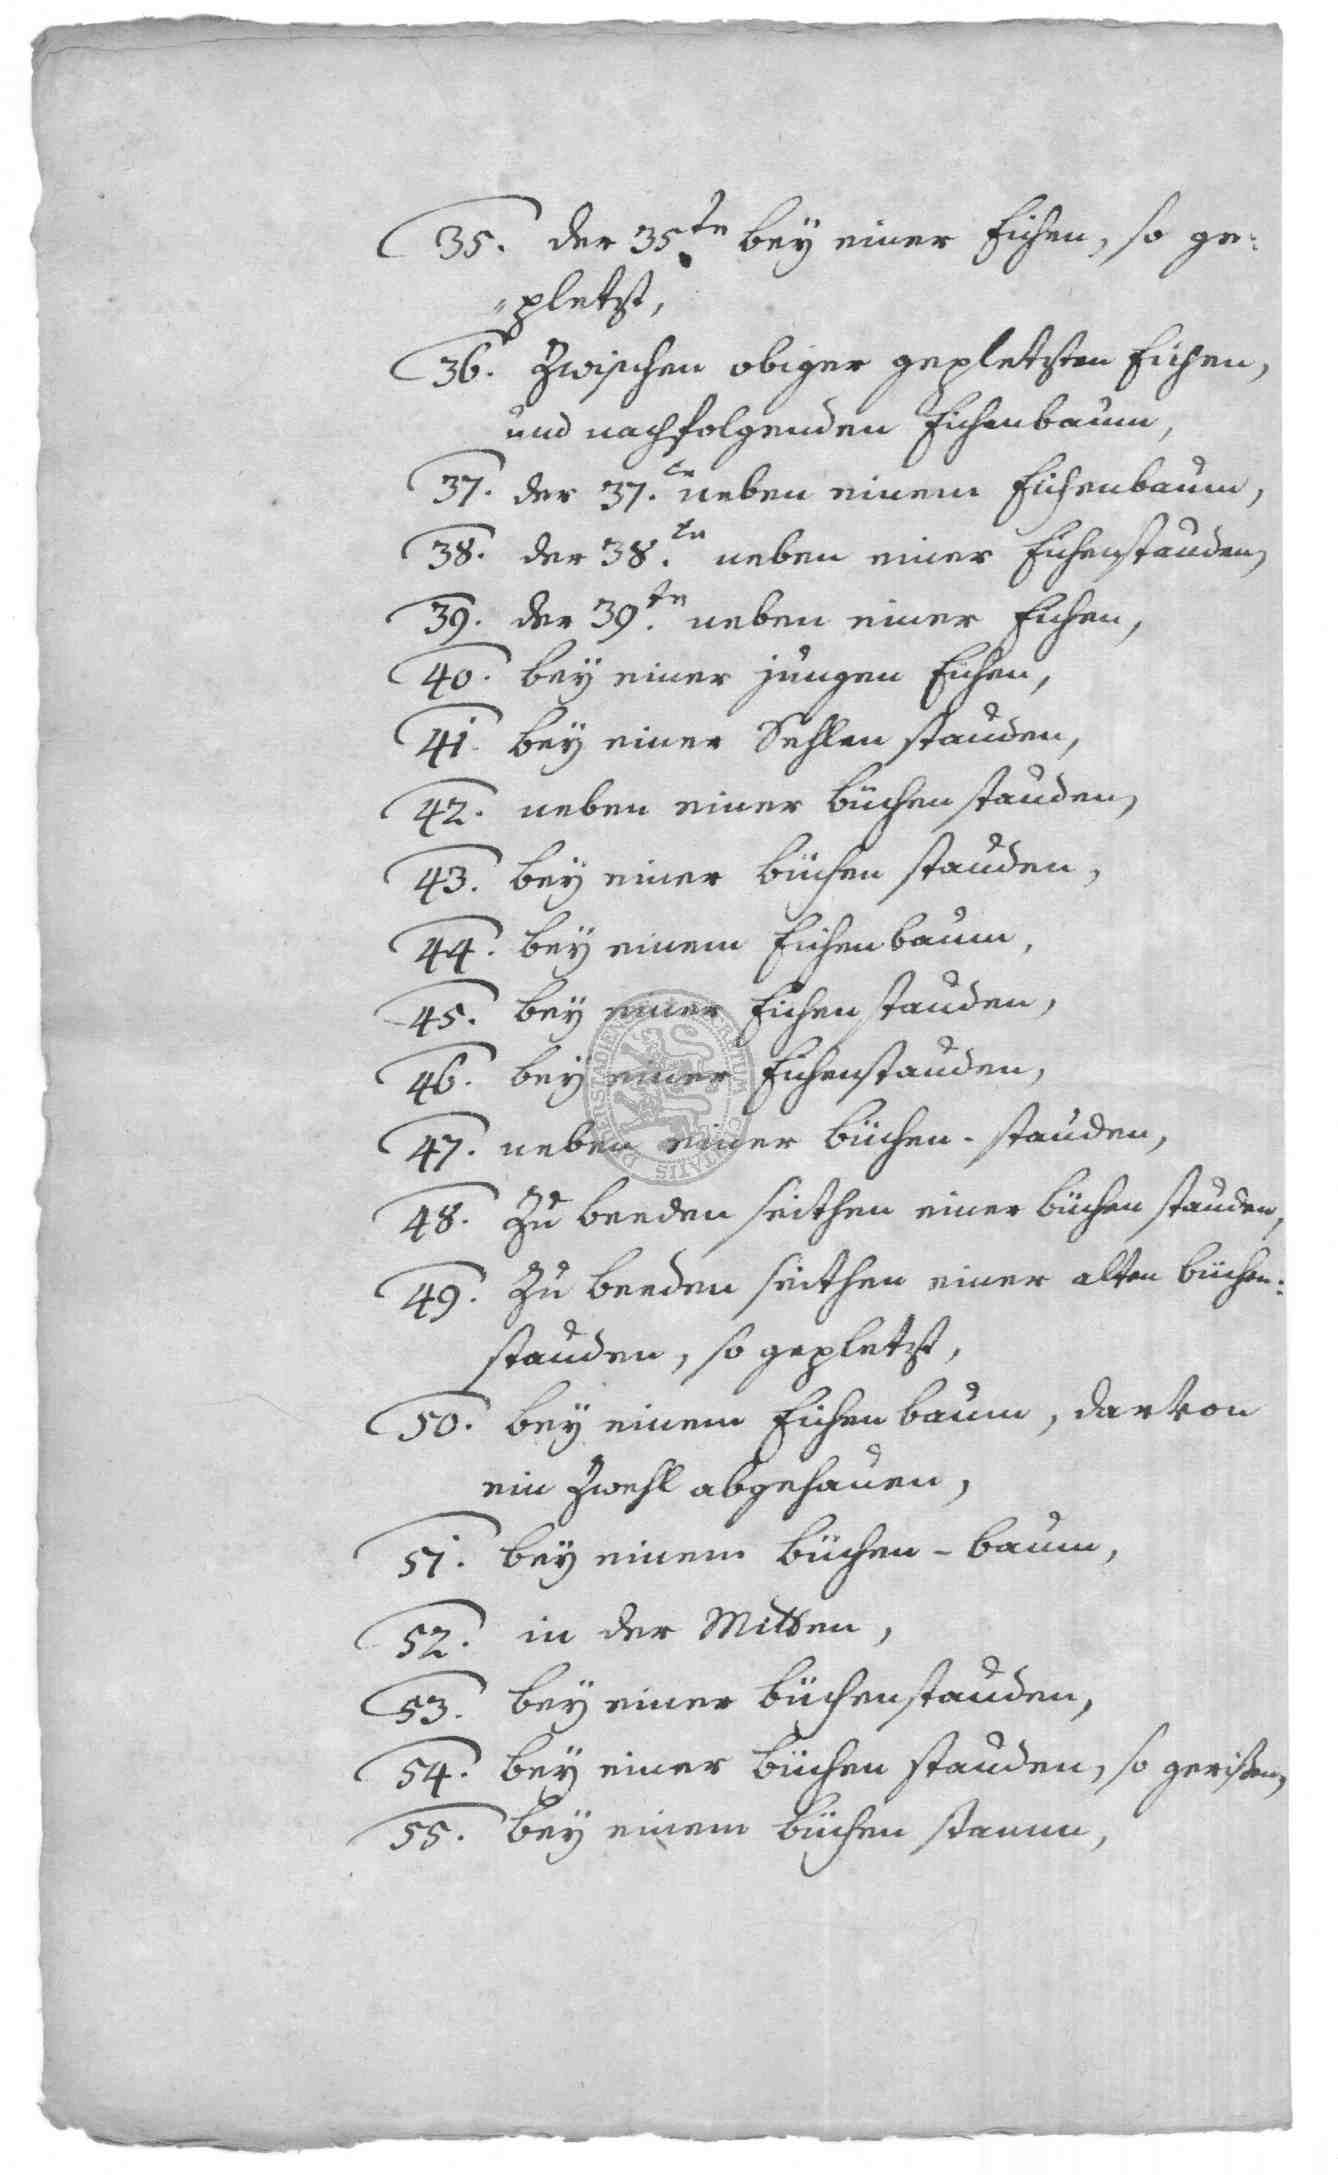 35. der 35.te bey einer Eichen, so ge-
-pletzt,
36. Zwischen obiger gepletzten Eichen,
und nachfolgenden Eichenbaum,
37. der 37.te neben einem Eichenbaum,
38. der 38.te neben einer Eichenstauden,
39. der 39.te neben einer Eichen,
40. bey einer jungen Eichen,
41. bey einer Sehlen stauden,
42. neben einer büchen stauden,
43. bey einer büchen stauden,
44. bey einem Eichenbaum,
45. bey einer Eichen stauden,
46. bey einer Eichenstauden,
47. neben einer büchen-stauden,
48. Zu beeden seithen einer büchen stauden,
49. Zu beeden seithen einer alten büchen-
stauden, so gepletzt,
50. bey einem Eichenbaum, darvon
ein Zwehl abgehauen,
51. bey einem büchen-baum,
52. in der Mitten,
53. bey einer büchenstauden,
54. bey einer büchen stauden, so gerißen,
55. bey einem büchen stamm,